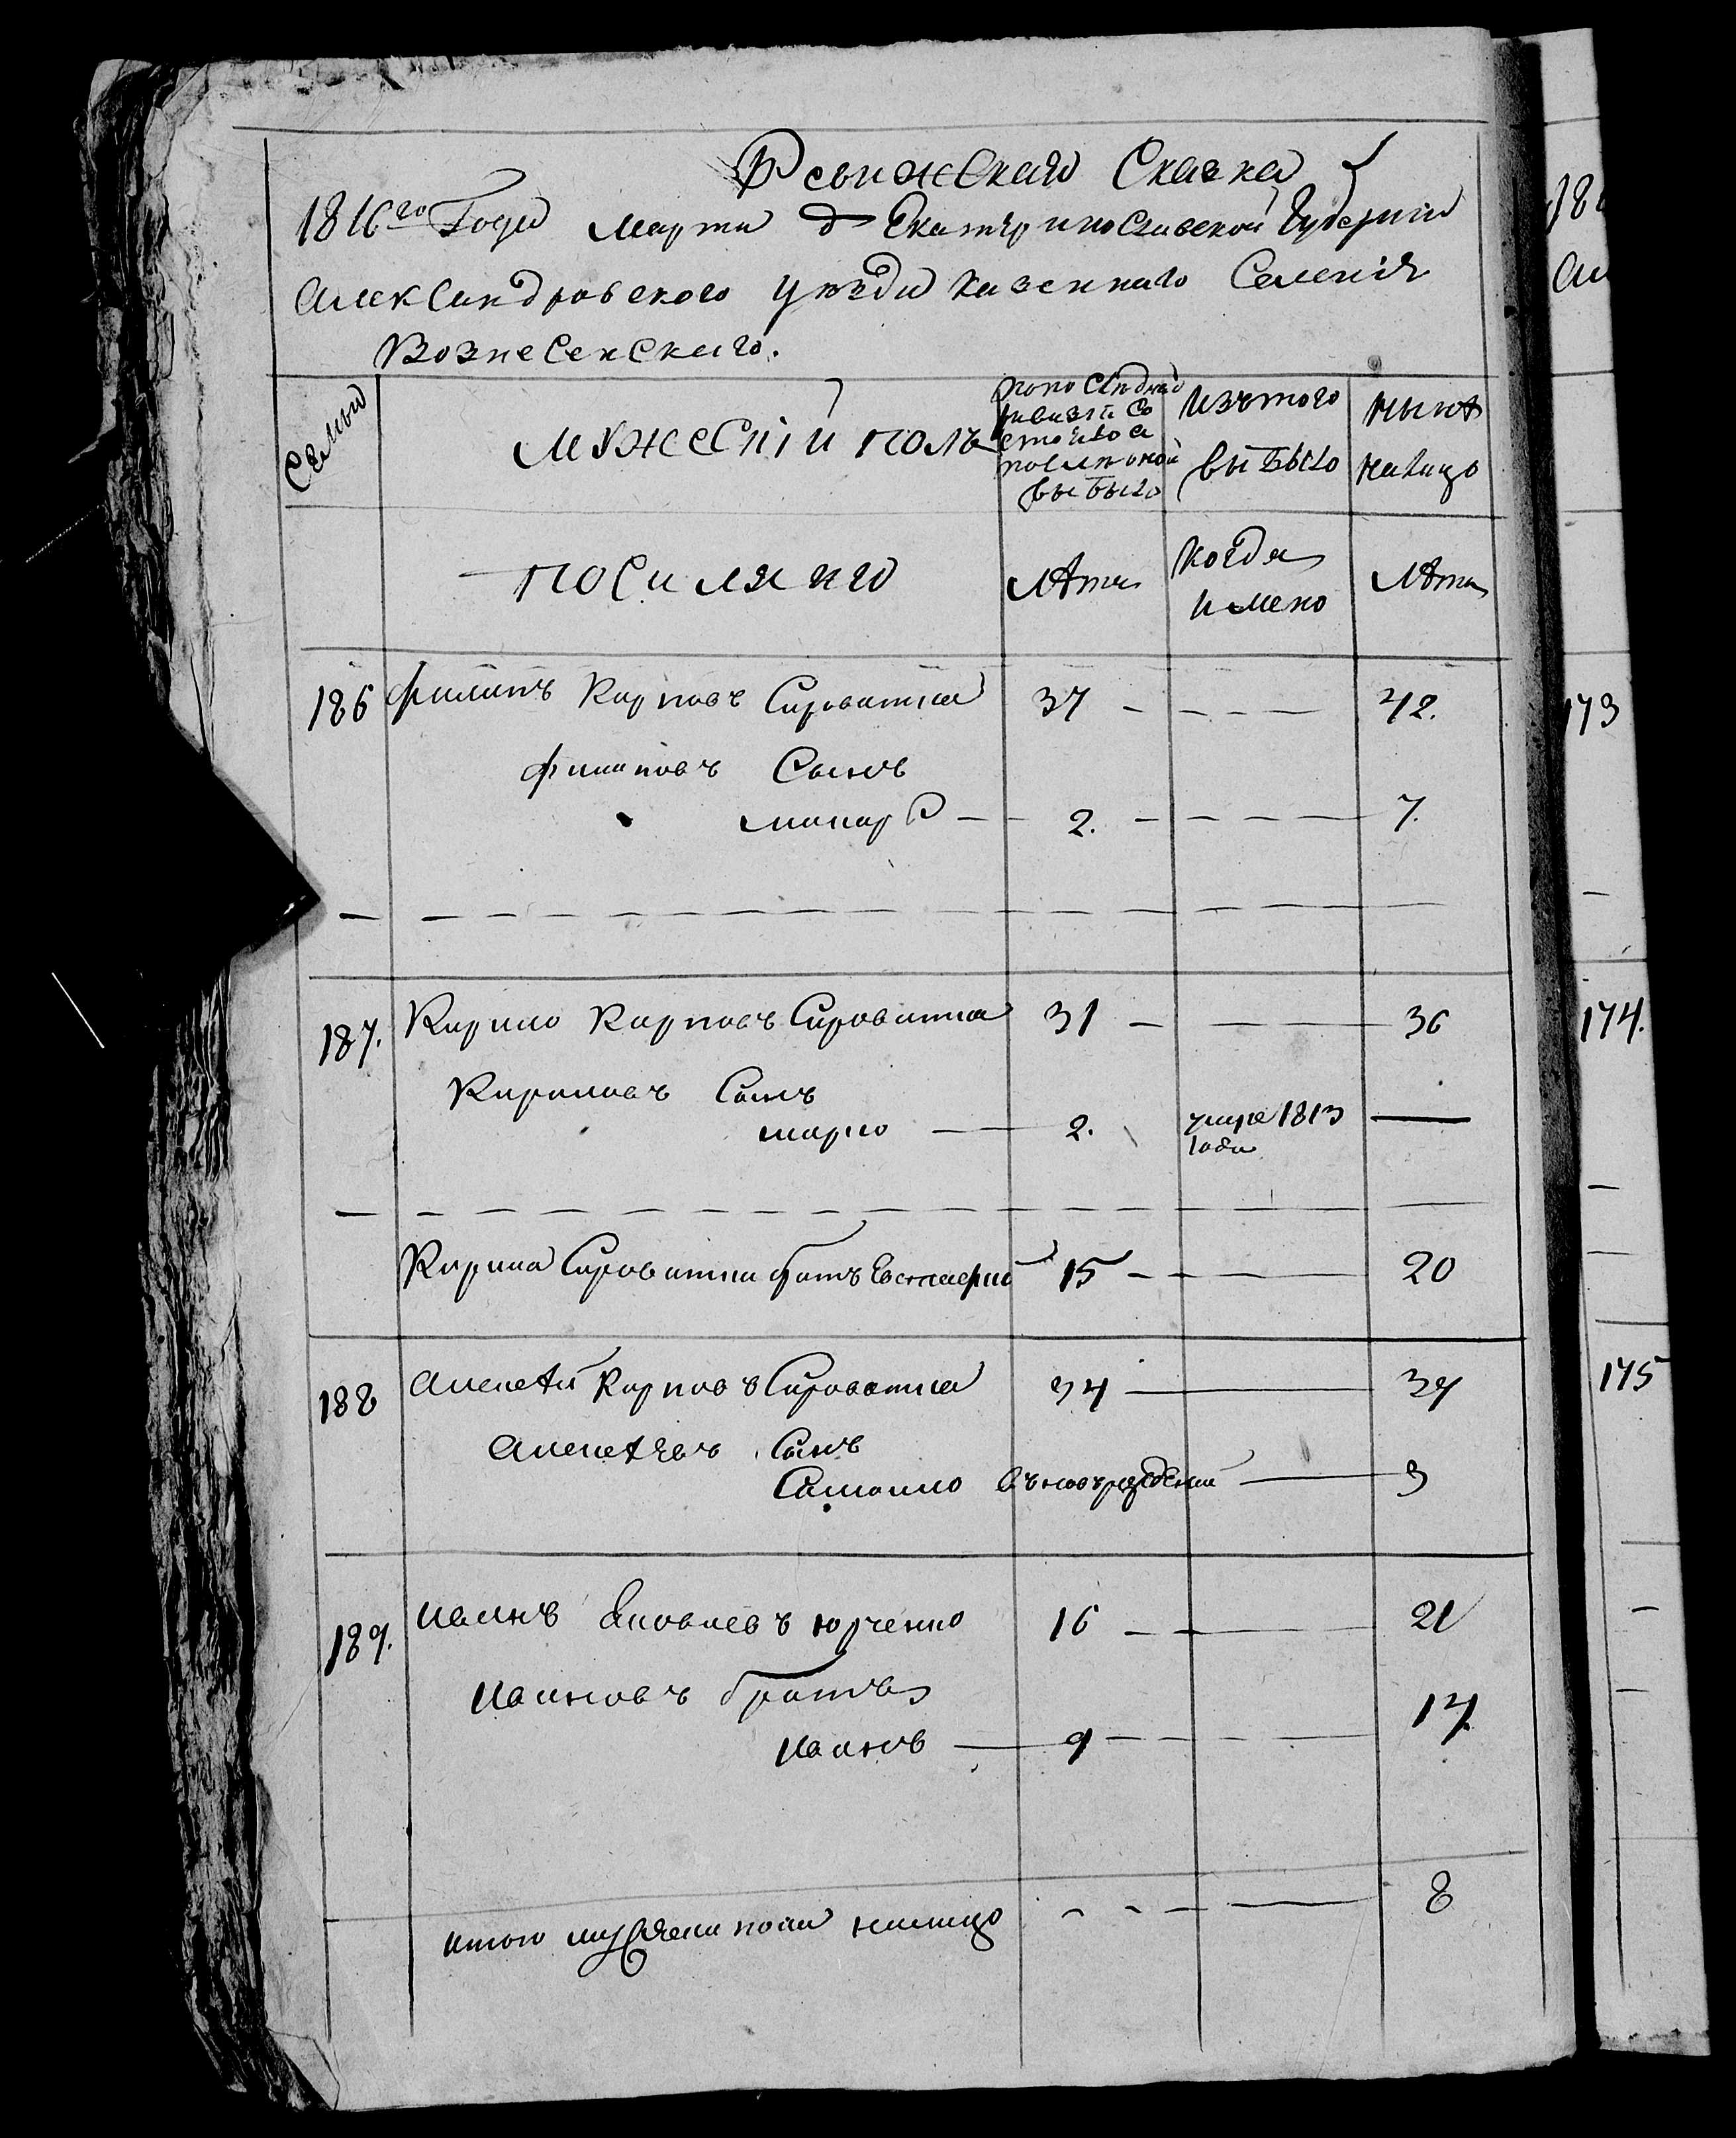 Ревижская Сказка
1816го Года марта д Екатеринославской Губернии
Александровского уезда казеннаго Селения
Вознесенскаго.
Семьи
мужескiй полъ
попоследней ревизiи состояло и после оной выбыло
изътого выбыло
ныне налицо
поселяне
Лета
когда имено
Лета
186 Филипъ Карповъ Сироватка 37 - - - - 42.
Филиповъ Сынъ
макаръ — 2. - - - - 7.
187. Кирило Карповъ Сироватка 31 — — 36
Кириловъ Сынъ
марко — 2. умре 1813 года —
Кирила Сироватки братъ Евстафий 15 - — 20
188 Алексей Карповъ Сироватка 34 — 39
Алексеевъ Сынъ
Самоило вновърождений — 3
189. Иванъ Яковлевъ юрченко 16 - — 21
Ивановъ братъ
Иванъ — 9 - - - 14.
итого мужеска пола налицо - - - — 8
18
Ал
173
174.
175